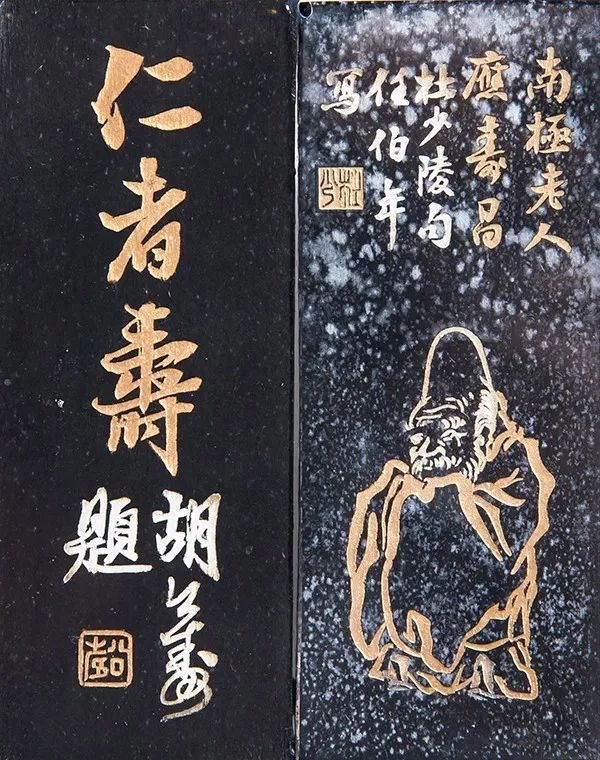 仁者壽
胡公壽
題
南極老人
應壽昌
杜少陵句
任伯年
寫